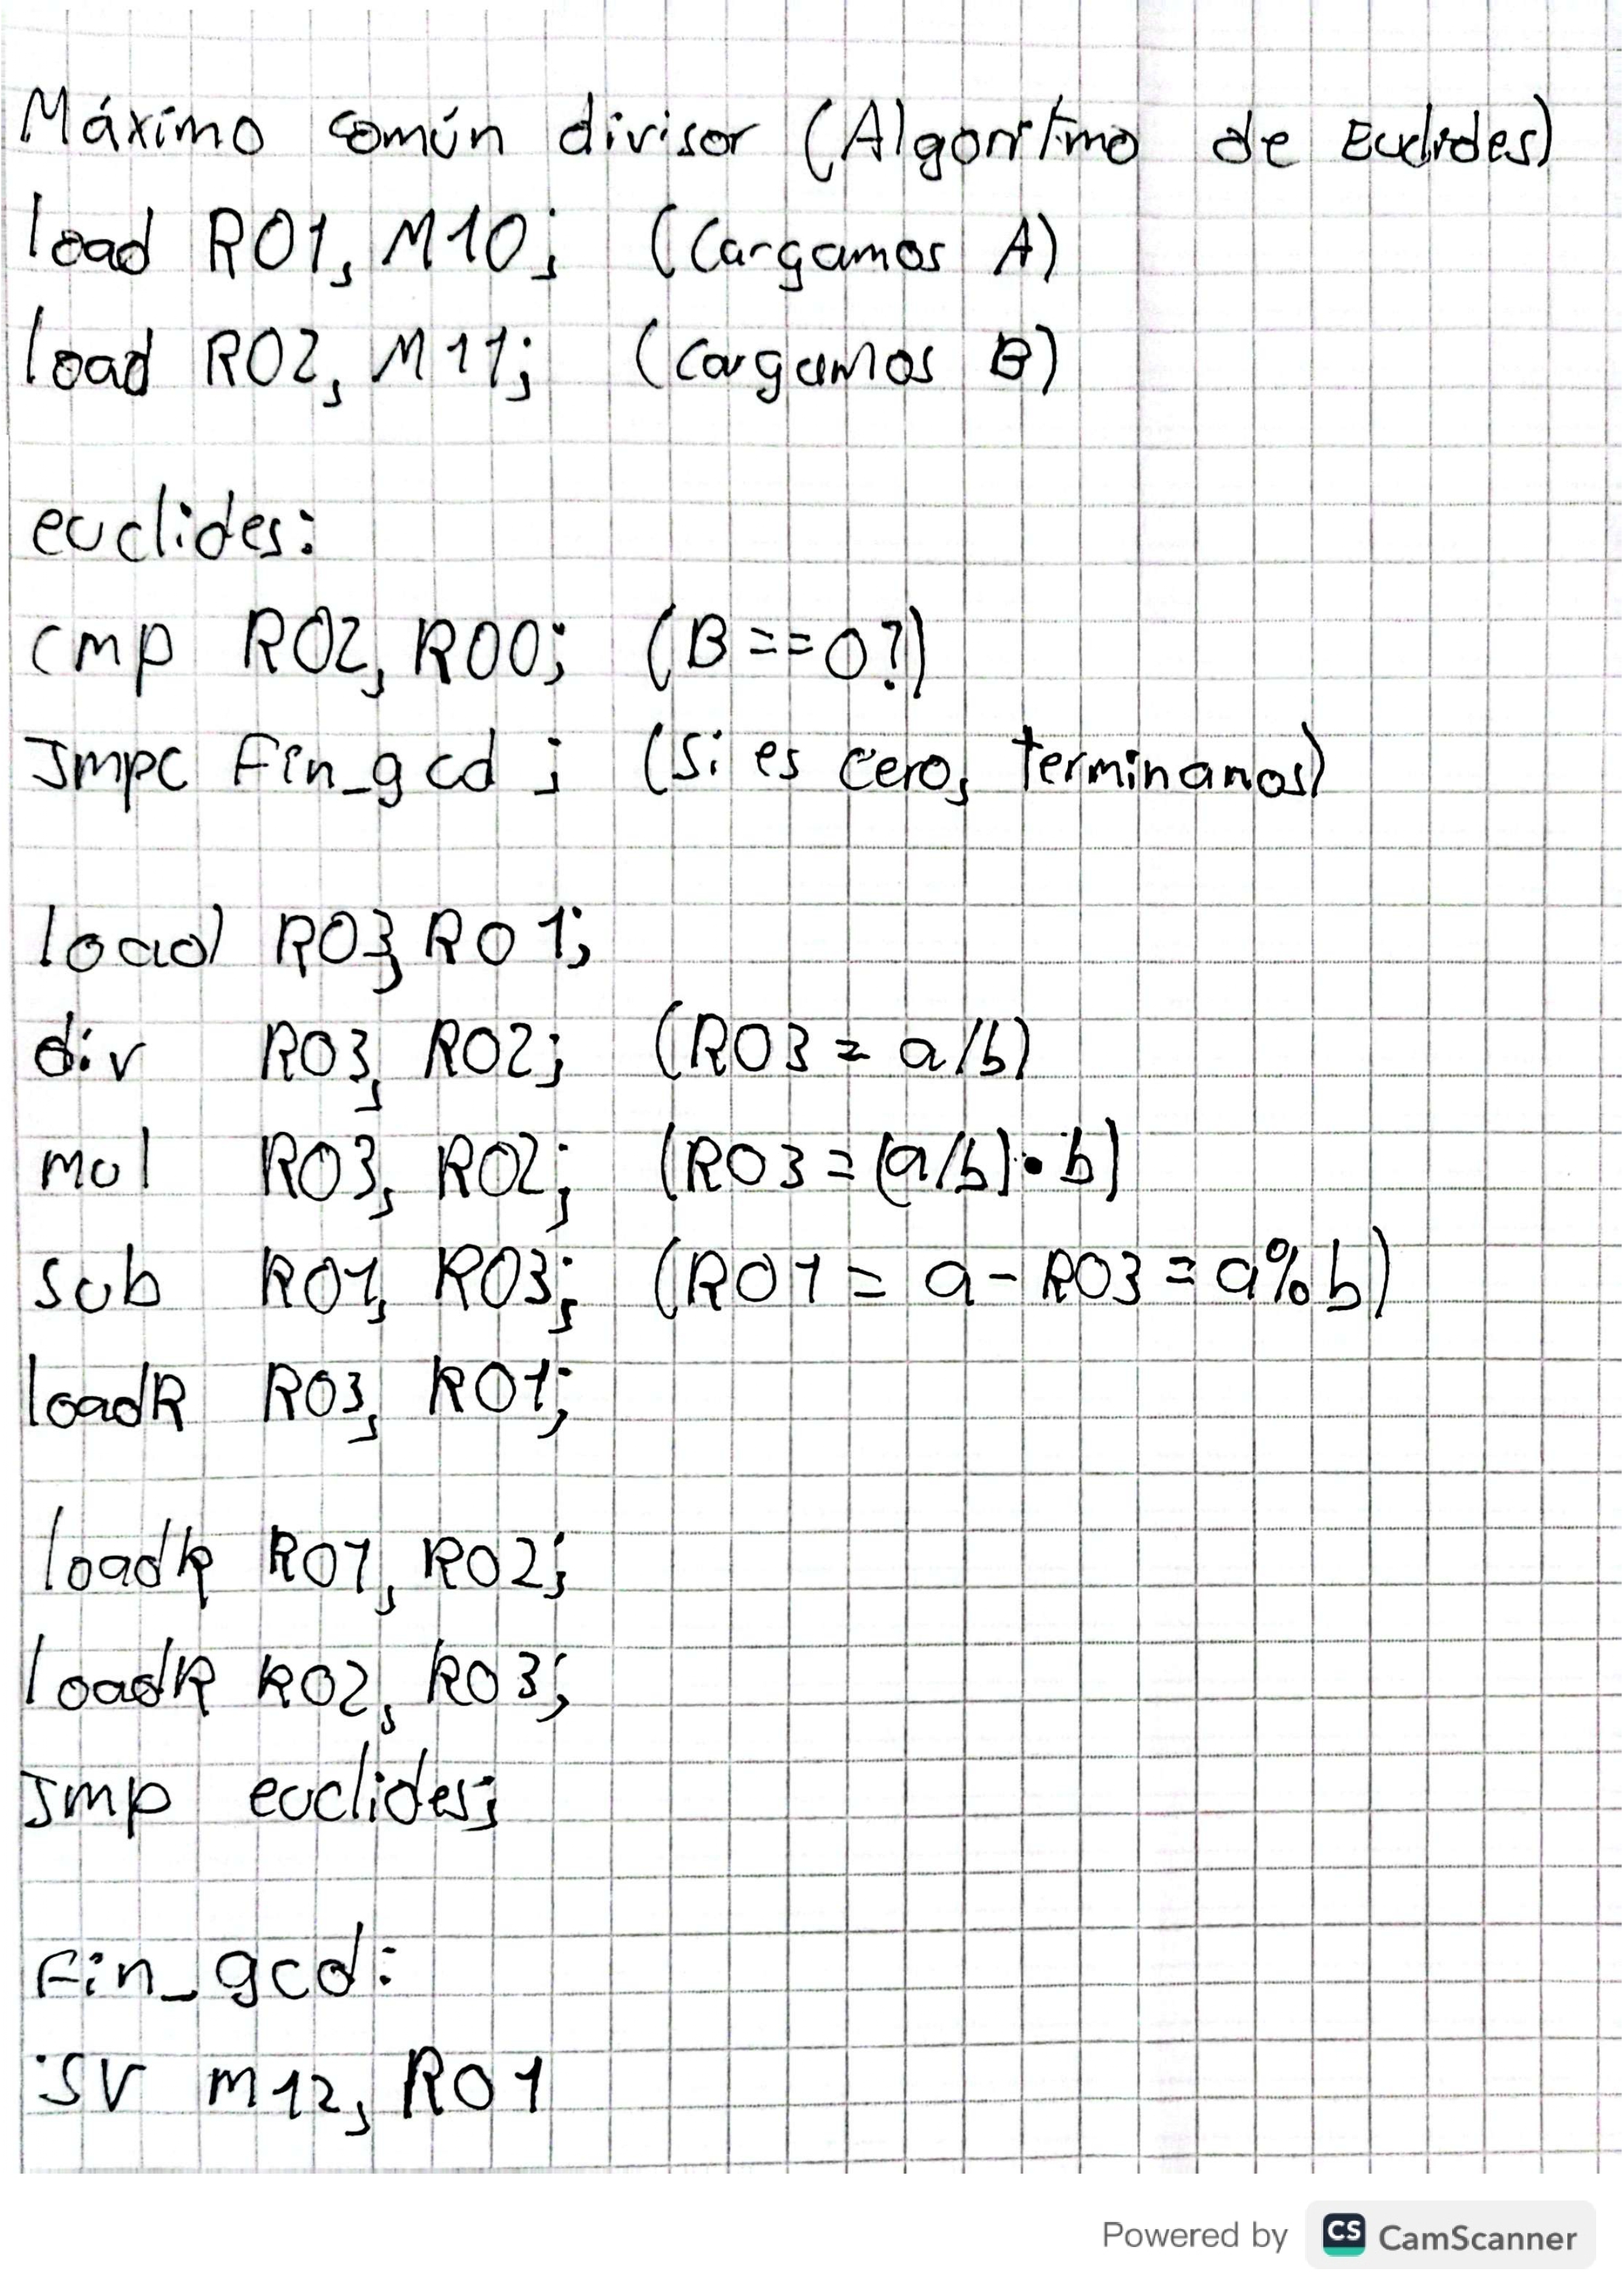 Máximo común divisor (Algoritmo de Euclides)
load R01, M10; (Cargamos A)
load R02, M11; (Cargamos B)
euclides:
cmp R02, R00; (B==0?)
Jmpc Fin_gcd ; (Si es cero, terminamos)
load R03, R01;
div R03, R02; (R03 = a/b)
mul R03, R02; (R03 = (a/b)•b)
sub R01, R03; (R01 = a - R03 = a%b)
loadR R03, R01;
loadR R01, R02;
loadR R02, R03;
Jmp euclides;
Fin_gcd:
SV M12, R01
Powered by CS CamScanner